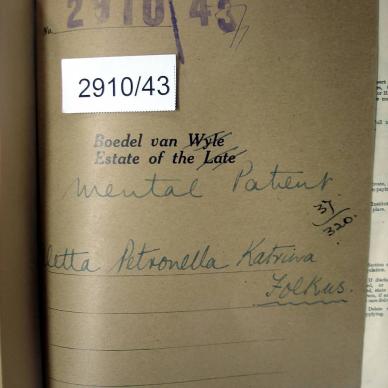 No. 2910/43
2910/43
Boedel van Wyle
Estate of the Late
Mental Patient
37/320.
letta Petronella Katrina
Folkus.